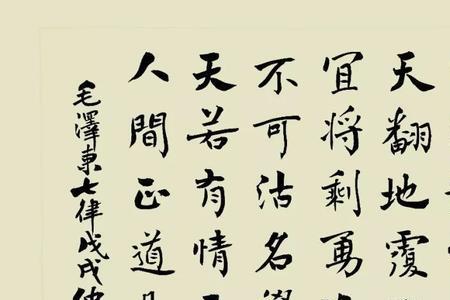 天翻地覆
宜将剩勇
不可沽名
天若有情
人間正道
毛澤東七律戊戌